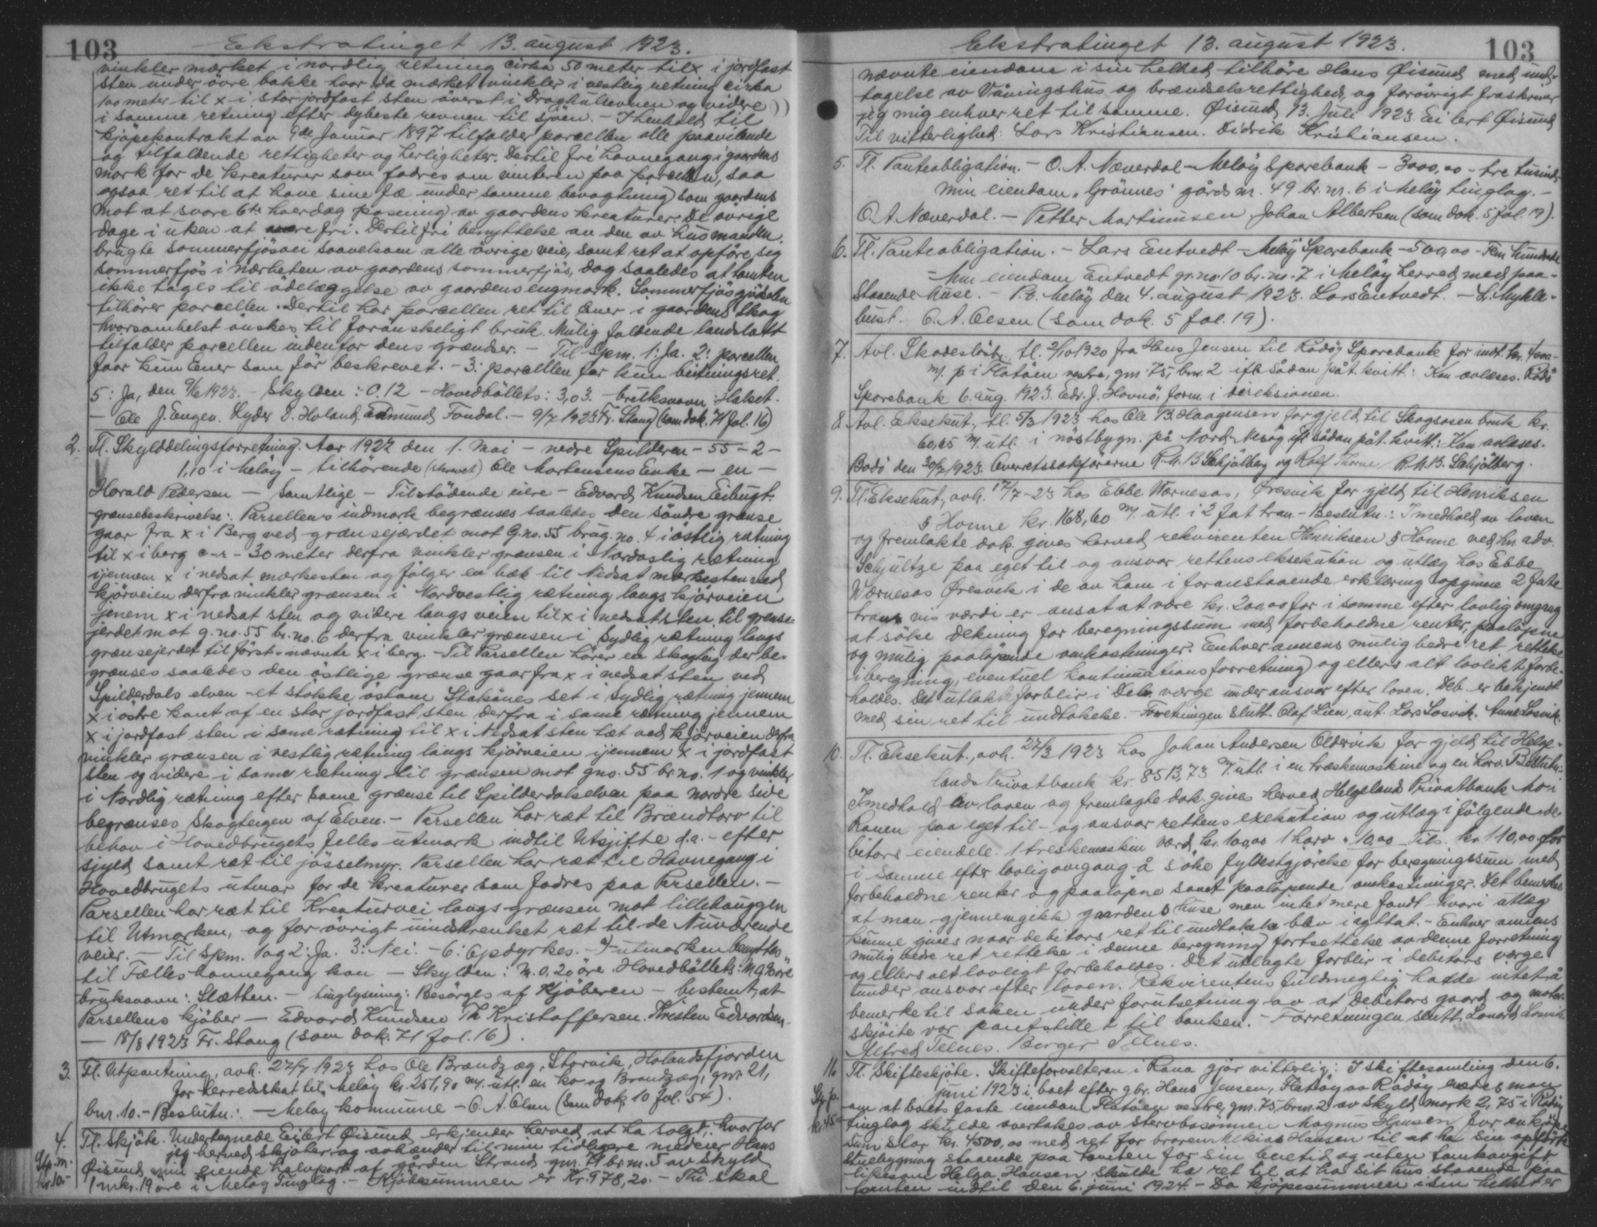 103
Ekstratinget 13. august 1923.
vinkler mærket i nordlig retning cirka 50 meter til x i jordfast
sten under övre bakke hvor da mærket vinkler i vestlig retning cirka
100 meter til x i stor jordfast sten överst i og videre
i samme retning efter dybeste revnen til sjöen. - I henhold til
kjöpekontrakt av 9de Januar 1897 tilfalder porcellen alle paaværende
og tilfaldende rettigheter og herligheter. Dertil fri havnegang i gaardens
mark for de kreaturer som födres om vinteren paa porcellen, saa
ogsaa ret til at have sine fæ under samme bevogtning som gaardens
mot at svare 6te hverdag pasning av gaardens kreaturer. De övrige
dage i uken at være fri. Dertil fri benyttelse av den av husmanden
brugte sommerfjösvei saavelsom alle övrige veie, samt ret at opföre sig
sommerfjös i nærheten av gaardens sommerfjös, dog saaledes at tomten
ikke tages til ödelæggelse av gaardens engmark. Sommerfjösgjödselen
tilhörer porcellen. Dertil har porcellen ret til Ener i gaardens skog
hvorsomhelst önskes til foranskeligt bruk. Mulig faldende landslatt
tilfalder porcellen indenfor dens grænser. - Til Spm. 1: Ja. 2: porcellen
faar kun Ener som för beskrevet. - 3: porcellen får kun beitningsret.
5: Ja, den 9/6 1923. - Skylden: 0.12 - Hovedböllets: 3,03. - bruksnavn:
- Ole J. Engen. Peder S. Holand, Edmund Fondal. - 9/7 1923 Fr. Stang (som dok. 71 fol. 16)
2. Tl. Skylddelingsforretning. Aar 1922 den 1. Mai - nedre Spilderen - 55 - 2 -
1,10 i Melöy - tilhörende Ole Mortensens Enke - en -
Harald Pedersen - Samtlige - Tilstödende eiere - Edvard Knudsen Eibugt.
grænsebeskrivelse: Parsellens indmark begrænses saaledes den söndre grænse
gaar fra x i Berg ved grænsejærdet mot G.no. 55 brug.no. 4 i östlig rætning
til x i berg c-r - 30 meter derfra vinkler grænsen i Nordöstlig rætning
ijennem x i nedsat mærkesten og fölger en bæk til Nedsat mærkesten ved
kjörveien derfra vinkler grænsen i Nordvestlig rætning langs kjörveien
jenem x i nedsat sten og videre langs veien til x i nedsat sten til grense-
jerdet mot g.no. 55 br.no. 6 derfra vinkler grænsen i Sydlig rætning langs
grænsejerdet til först-nævnte x i berg. - Til Parsellen hörer en skogteig der be-
grænses saaledes den östlige grænse gaar fra x i nedsat sten ved
Spilderdals elven et stökke östom set i Sydlig rætning jennem
x i östre kant af en stor jordfast sten derfra i same rætning jennem
x i jordfast sten i same rætning til x i Nedsat sten tæt ved kjörveien derfra
vinkler grænsen i vestlig rætning langs kjörveien ijennem x i jordfast
sten og videre i same rætning til grænsen mot gno. 55 br no. 1 og vinkler
i Nordlig rætning efter same grænse til Spilderdalselven paa nordre side
begrænses skogteigen af Elven. - Parsellen har ræt til Brændtorv til
behov i Hovedbrugets felles utmark indtil Utsjifte d.a. - efter
sjyld samt ræt til jösselmyr. Parsellen har ræt til Havnegang i
Hovedbrugets utmar for de kreaturer som fodres paa Parsellen. -
Parsellen har ræt til Kreaturvei langs grænsen mot lillehauggen
til Utmarken, og for övrigt uinnskrenket ræt til de Nuværende
veier. - Til Spm. 1 og 2: Ja. 3: Nei. - 6: Opdyrkes. - utmarken benyttes
til Fælles havnegang kan - Skylden: M. 0,20 öre. Hovedböllets: M 0,90 öre
bruksnavn: Slætten. - tinglysning: Besörges af Kjöberen - bestemt, at
Parsellens kjöber - Edvard Knudsen Th Kristoffersen. Kristen Edvardsen.
- 18/8 1923 Fr. Stang (som dok. 71 fol. 16).
3. Tl. Utpantning, avh. 27/7 1923 hos Ole Brandzæg, Storvik, Holandsfjorden
for herredskat til Melöy kr. 251,90 m/ utl. en kö og Brandzæg, gnr. 21,
bnr. 10. - Beslutn.: - Melöy kommune - O. A. Olsen (som dok. 10 fol. 54).
4. Tl. Skjöte. Undertegnede Eilert Öisund erkjender herved at ha solgt, hvorfor
jeg herved skjöter og avhænder til min tidligere medeier Hans
Öisund min eiende halvpart af gården Strand gnr. 71 br.nr. 5 av skyld
1 mrk. 19 öre i Melöy Tinglag. - Kjöbesummen er kr. 978,20. - Thi skal
103
Ekstratinget 13. august 1923.
nævnte eiendom i sin helhed tilhöre Hans Öisund med und-
tagelse av Våningshus og brændselsrettighed og forövrigt fraskriver
jeg mig enhver ret til samme. Öisund 13. Juli 1923 Eilert Öisund
Til vitterlighed: Lars Kristiansen. Didrik Kristiansen.
5. Tl. Panteobligation. - O. A. Næverdal - Melöy Sparebank - 3000,00 - tre tusinde
min eiendom "Grönnes" gårds nr. 49 br. nr. 6 i Melöy tinglag. -
O. A. Næverdal. - Petter Martinusen Johan Albertsen (som dok. 5 fol. 19).
6. Tl. Panteobligation. - Lars Eentvedt - Melöy Sparebank - 500,00 - Fem hundrede
- Min eiendom Entvedt gr. no 10 br. no. 7 i Melöy herred med paa-
staaende huse. - P.t. Melöy den 4. august 1923. Lars Eentvedt. - L. Mykle-
bust. O. A. Olsen (som dok. 5 fol. 19).
7. Avl. Skadeslösbr. tl. 2/10 1920 fra Hans Jensen til Rödöy Sparebank for indt. kr.
m/ p. i Flatöen vestre, gnr. 75, bnr. 2 ifl. sådan påt. kvitt.: Kan avlæses. Rödö
Sparebank 6. aug. 1923. Edv. J. Hovnö, form. i direksionen.
8. Avl. Eksekut., tl. 5/3 1923 hos Ole B. Haagensen for gjeld til Skogsosen bruk kr.
60,65 m/ utl. i nöstbygn. på Nord Nesöy ifl. sådan påt. kvitt.: Kan avlæses.
Bodö den 30/7 1923 Overretssakförerne R. A. B. Schjölberg og Rolf Thorne R. A. B. Schjölberg.
9. Tl. Eksekut., avh. 17/7-23 hos Ebbe Wærnesos, Öresvik for gjeld til Henriksen
& Honne kr. 168,60 m/ utl. i 2 fat tran. - Beslutn.: I medhold av loven
og fremlakte dok. gives herved rekvirenten Henriksen & Honne ved hr. adv.
Schjultze paa eget til og ansvar rettens eksekution og utlæg hos Ebbe
Wærnesos Öresvik i de av ham i foranstaaende erklæring opgivne 2 fat
tran, vis værdi er ansat at være kr. 200,00 for i samme efter lovlig omgang
at söke dekning for beregningssum med forbeholdne renter, paalöpne
og mulig paalöpende omkostninger. Enhver annens mulig bedre ret, rettelse
i beregning, eventuel kontinuationsforretning og ellers alt lovlikt forbe-
holdes. Det utlakte forblir i deb. værge under ansvar efter loven. Deb. er bekjendt
med sin ret til undtakelse. Forretningen slutt. Olaf Lien, aut. Lars Losvik. Arne Losvik.
10. Tl. Eksekut., avh. 27/3 1923 hos Johan Andersen Oldervik for gjeld til Helge-
lands Privatbank kr. 8513,73 m/ utl. i en træskemaskine og en harv. Beslutn.:
I medhold av loven og fremlagte dok. gives herved Helgelands Privatbank Mo i
Ranen paa eget til - og ansvar rettens exekution og utlæg i fölgende de-
bitors eiendele. 1 treskemaskin værd kr. 100,00 1 harv " 10,00 Tils. kr. 110,00 for
i samme efter lovlig omgang å söke fyldestgjörelse for beregningssum med
forbeholdne renter og paalöpne samt paalöpende omkostninger. Det bemerkes
at man gjennemgikk gaardens huse men intet mere fandt hvori utlæg
kunne gives naar debitors ret til undtakelse blev iagttat. - Enhver annens
mulig bedre ret rettelse i denne beregning, fortsettelse av denne forretning
og ellers alt lovligt forbeholdes. Det utlagte forblir i debitors værge
under ansvar efter loven. Rekvirentens fuldmegtig hadde intet å
bemerke til saken under forutsetning av at debitors gaard og motor-
sköite var pantstillet til banken. - Forretningen slutt. Losvik
Alfred Telnes. Berger Telnes.
11. Tl. Skifteskjöte. Skifteforvalteren i Rana gjör vitterlig: I skiftesamling den 6.
juni 1923 i boet efter gbr. Hans Jensen, Flatöy av Rödöy enedes man
om at boets faste eiendom Flatöen vestre, gnr. 75 brnr. 2 av skyld mark 2,75 i Rödöy
tinglag skulde overtakes av stervbosönnen Magnus Hansen for en kjöpe-
sum stor kr. 4500,00 med ret for broren Mekias Hansen til at ha sin
stuebygning staaende paa tomten for sin levetid og uten tomteavgift
likesom Helga Hansen skulde ha ret til at ha sit hus staaende paa
tomten indtil den 6. juni 1924. - Da kjöpesummen i sin helhet er